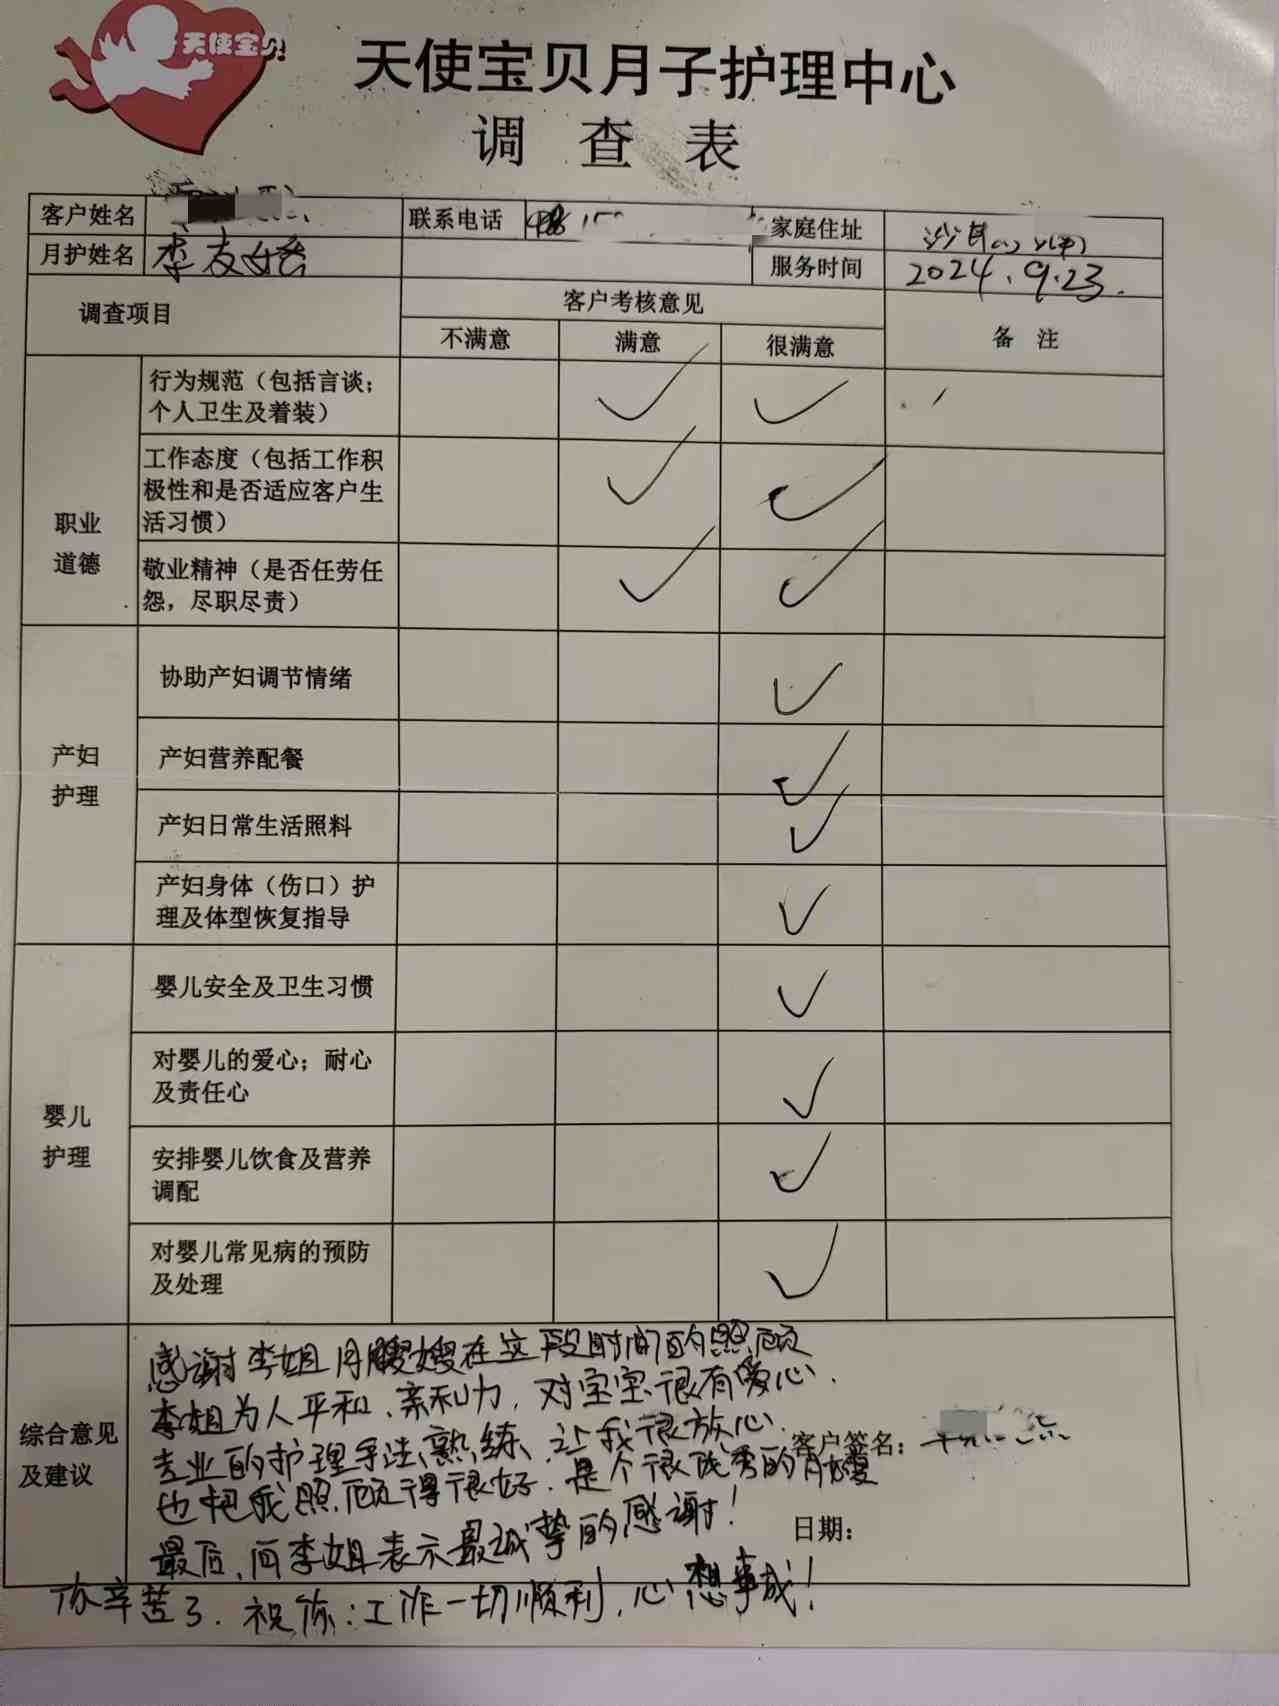 天使宝贝
天使宝贝月子护理中心
调 查 表
客户姓名 联系电话 家庭住址
月护姓名 李友 服务时间 2024.9.23.
调查项目 客户考核意见 备 注
不满意 满意 很满意
职业
道德
行为规范（包括言谈；
个人卫生及着装）
工作态度（包括工作积
极性和是否适应客户生
活习惯）
敬业精神（是否任劳任
怨，尽职尽责）
产妇
护理
协助产妇调节情绪
产妇营养配餐
产妇日常生活照料
产妇身体（伤口）护
理及体型恢复指导
婴儿
护理
婴儿安全及卫生习惯
对婴儿的爱心；耐心
及责任心
安排婴儿饮食及营养
调配
对婴儿常见病的预防
及处理
综合意见
及建议
感谢李姐月嫂在这段时间的照顾
李姐为人平和、亲和力，对宝宝很有爱心.
专业的护理手法、熟练、让我很放心.
客户签名：
也把我照顾得很好.是个很优秀的月嫂
最后，向李姐表示最诚挚的感谢！
日期：
你辛苦了.祝你：工作一切顺利，心想事成！